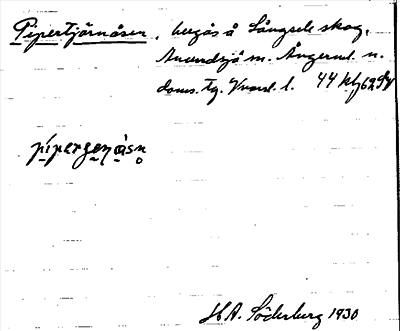 Pipertjärnåsen, bergås å Långsele skog,
Anundsjö sn. Ångerml. n.
doms. tg. Kvarnl. l. 44 kbf 62 dV
pipergenåsn
H.A. Söderberg 1930